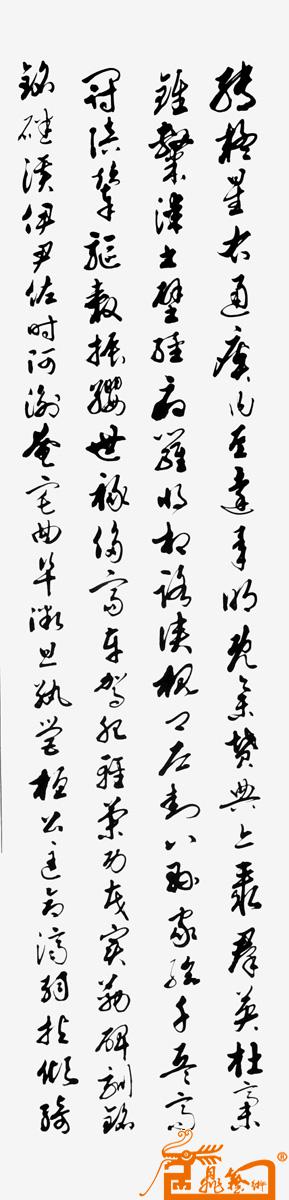 轉疑星右通廣內左達承明既集墳典亦聚群英杜稾
鍾隸漆書壁經府羅將相路俠槐卿戶封八縣家給千兵高
冠陪輦驅轂振纓世祿侈富車駕肥輕策功茂實勒碑刻銘
銘磻溪伊尹佐時阿衡奄宅曲阜微旦孰營桓公匡合濟弱扶傾綺